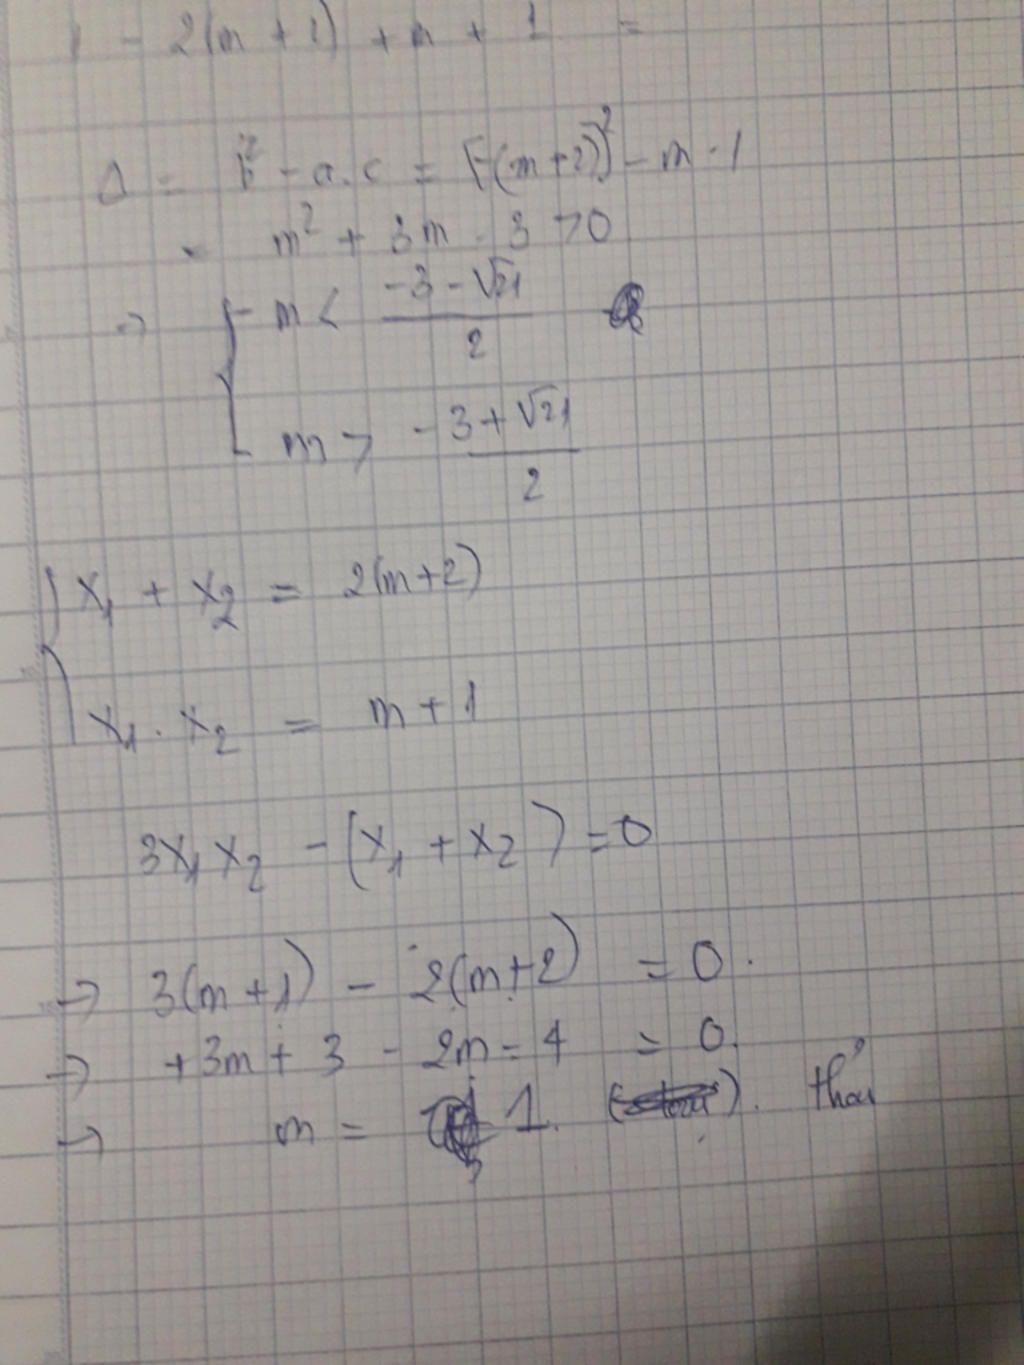 1 - 2(m + 1) + m + 1 =
Δ = b² - a.c = [-(m+2)]² - m - 1
= m² + 3m - 3 > 0
→ [ m < (-3 - √21)/2
m > (-3 + √21)/2
{ x₁ + x₂ = 2(m+2)
x₁ . x₂ = m + 1
3x₁x₂ - (x₁ + x₂) = 0
→ 3(m+1) - 2(m+2) = 0.
→ +3m + 3 - 2m - 4 = 0.
→ m = 1. thỏa